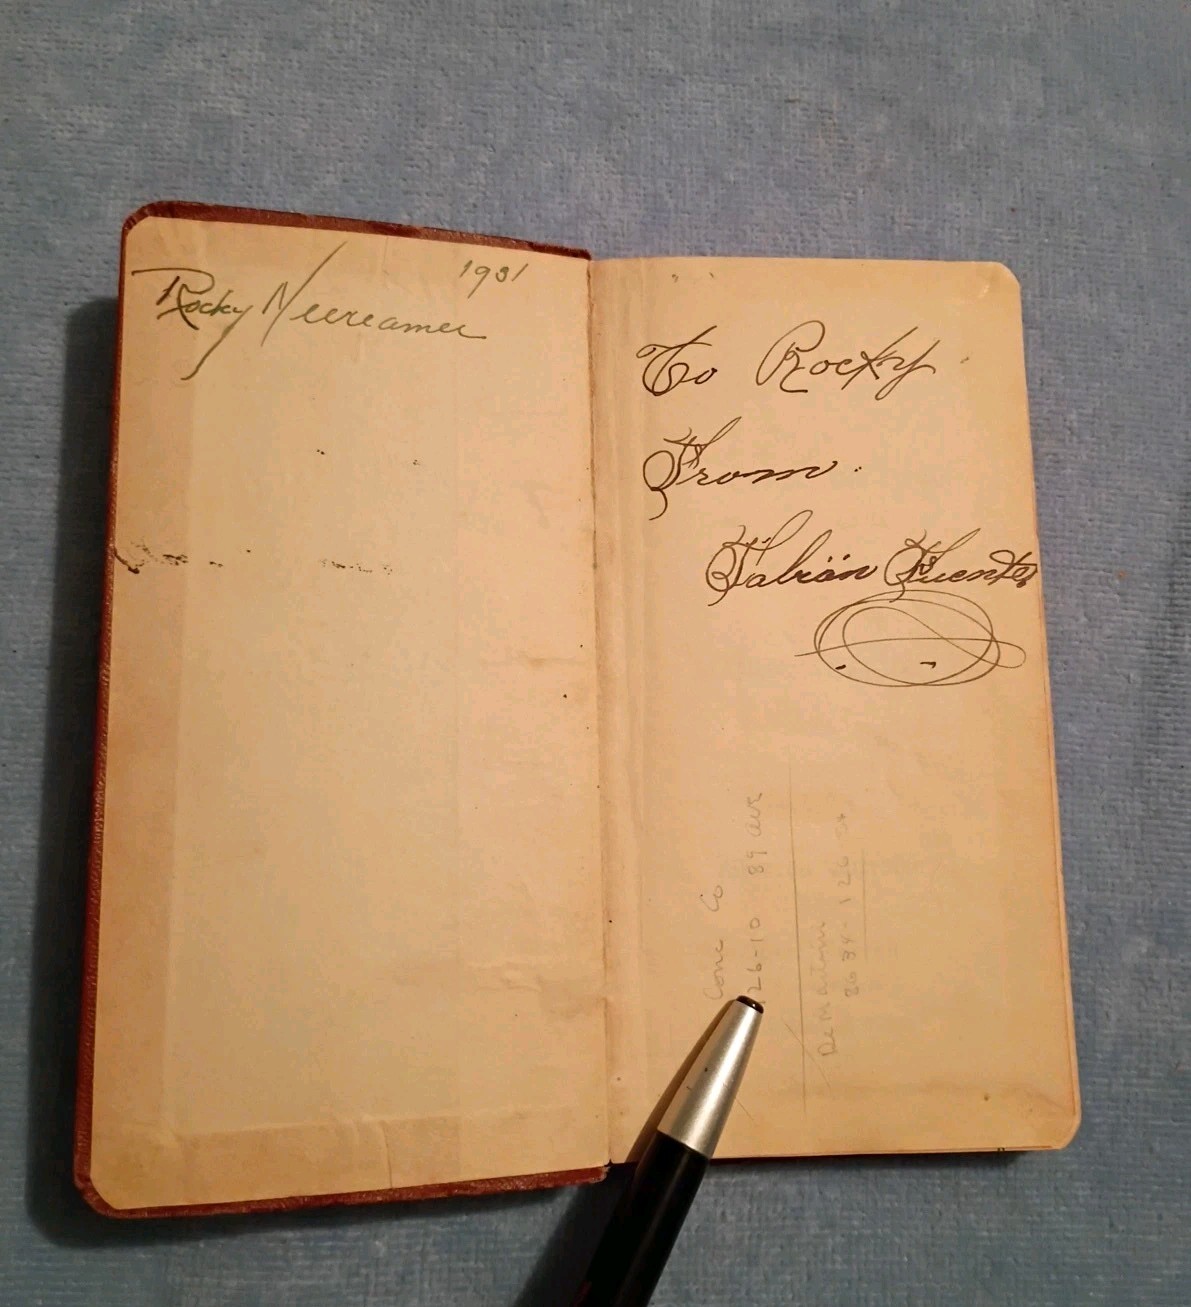 Rocky Neereamer 1931
To Rocky
From
Fabián Fuentes
Conc Co
126-10 89 ave
DeMartini
8634-126 St